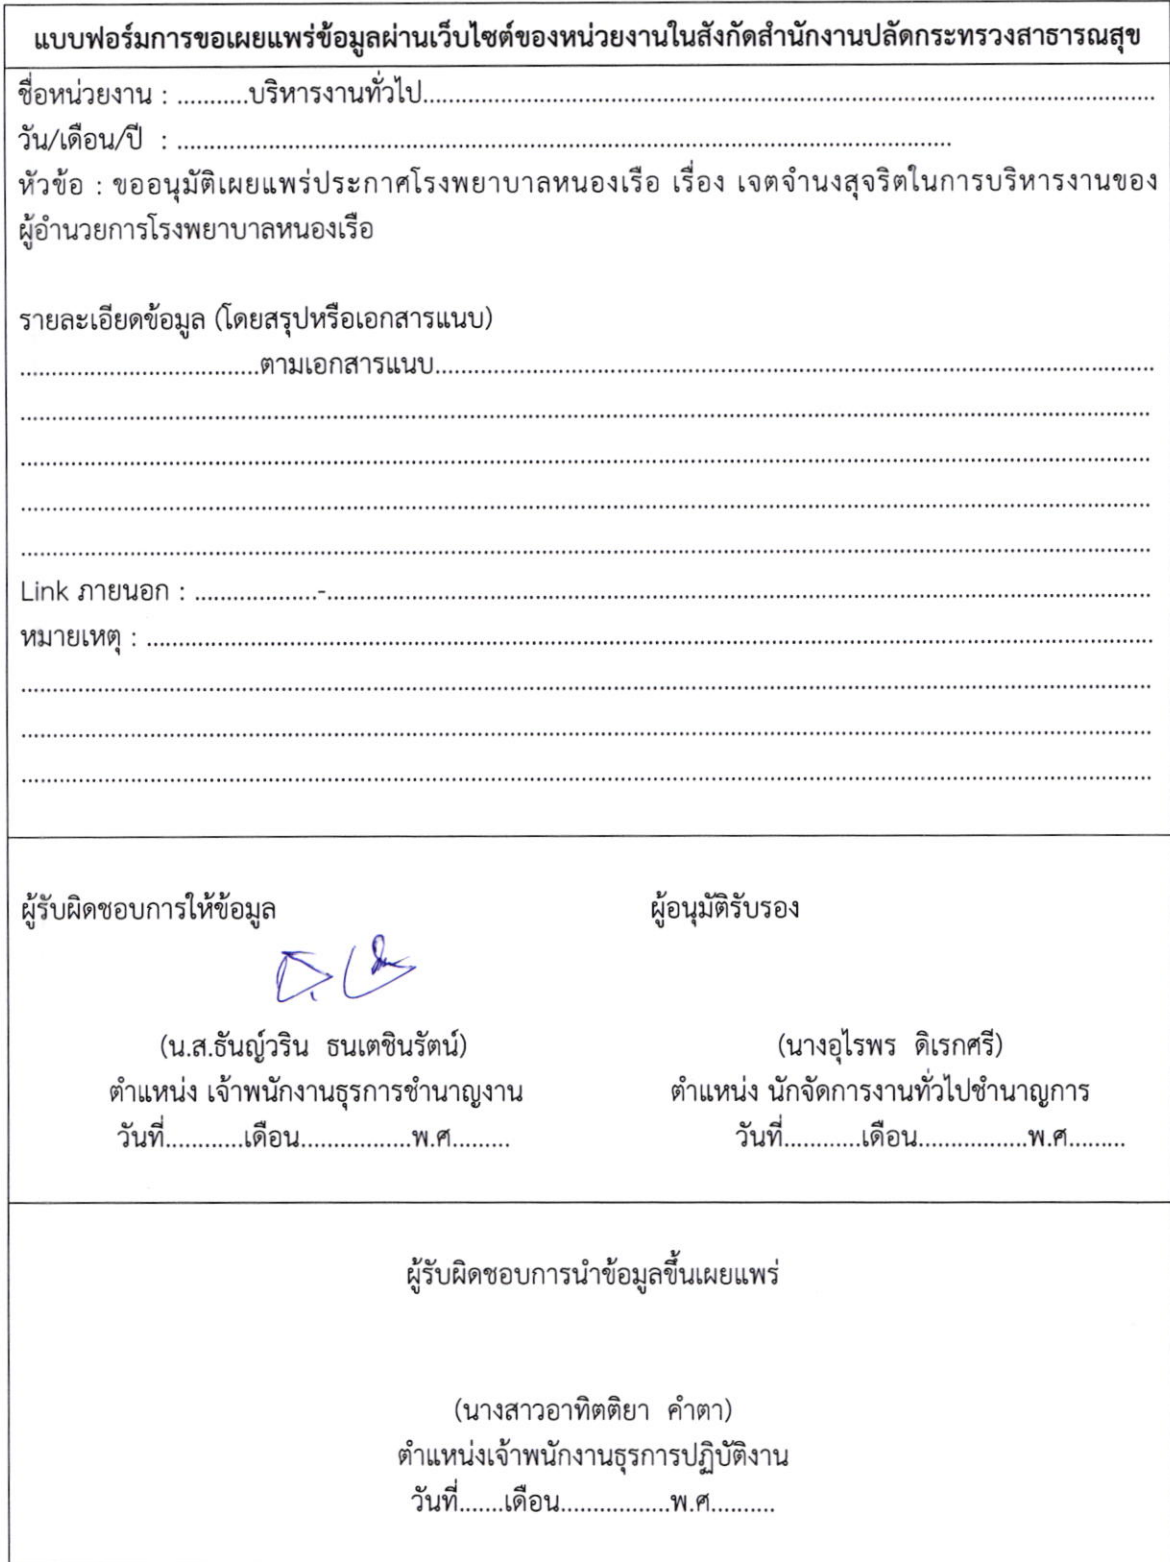 แบบฟอร์มการขอเผยแพร่ข้อมูลผ่านเว็บไซต์ของหน่วยงานในสังกัดสำนักงานปลัดกระทรวงสาธารณสุข
ชื่อหน่วยงาน : ...........บริหารงานทั่วไป...................................................................................................
วัน/เดือน/ปี : ..................................................................................................................
หัวข้อ : ขออนุมัติเผยแพร่ประกาศโรงพยาบาลหนองเรือ เรื่อง เจตจำนงสุจริตในการบริหารงานของ
ผู้อำนวยการโรงพยาบาลหนองเรือ
รายละเอียดข้อมูล (โดยสรุปหรือเอกสารแนบ)
.....................................ตามเอกสารแนบ..............................................................................................
..................................................................................................................................
..................................................................................................................................
..................................................................................................................................
..................................................................................................................................
Link ภายนอก : ...................-..............................................................................................
หมายเหตุ : ..................................................................................................................
..................................................................................................................................
..................................................................................................................................
..................................................................................................................................
ผู้รับผิดชอบการให้ข้อมูล ผู้อนุมัติรับรอง
(น.ส.ธันญ์วริน ธนเตชินรัตน์) (นางอุไรพร ดิเรกศรี)
ตำแหน่ง เจ้าพนักงานธุรการชำนาญงาน ตำแหน่ง นักจัดการงานทั่วไปชำนาญการ
วันที่............เดือน.................พ.ศ......... วันที่............เดือน.................พ.ศ.........
ผู้รับผิดชอบการนำข้อมูลขึ้นเผยแพร่
(นางสาวอาทิตติยา คำตา)
ตำแหน่งเจ้าพนักงานธุรการปฏิบัติงาน
วันที่.......เดือน.................พ.ศ..........